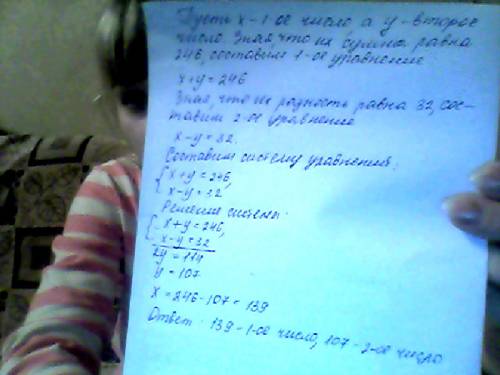 Пусть x - 1-ое число а y - второе
число. Зная, что их сумма равна
246, составим 1-ое уравнение
x+y=246
Зная, что их разность равна 32, сос-
тавим 2-ое уравнение
x-y=32.
Составим систему уравнений:
{x+y=246,
x-y=32
Решение системы:
{-x+y=246,
x-y=32
2y=214
y=107
x=246-107=139
Ответ: 139-1-ое число, 107-2-ое число